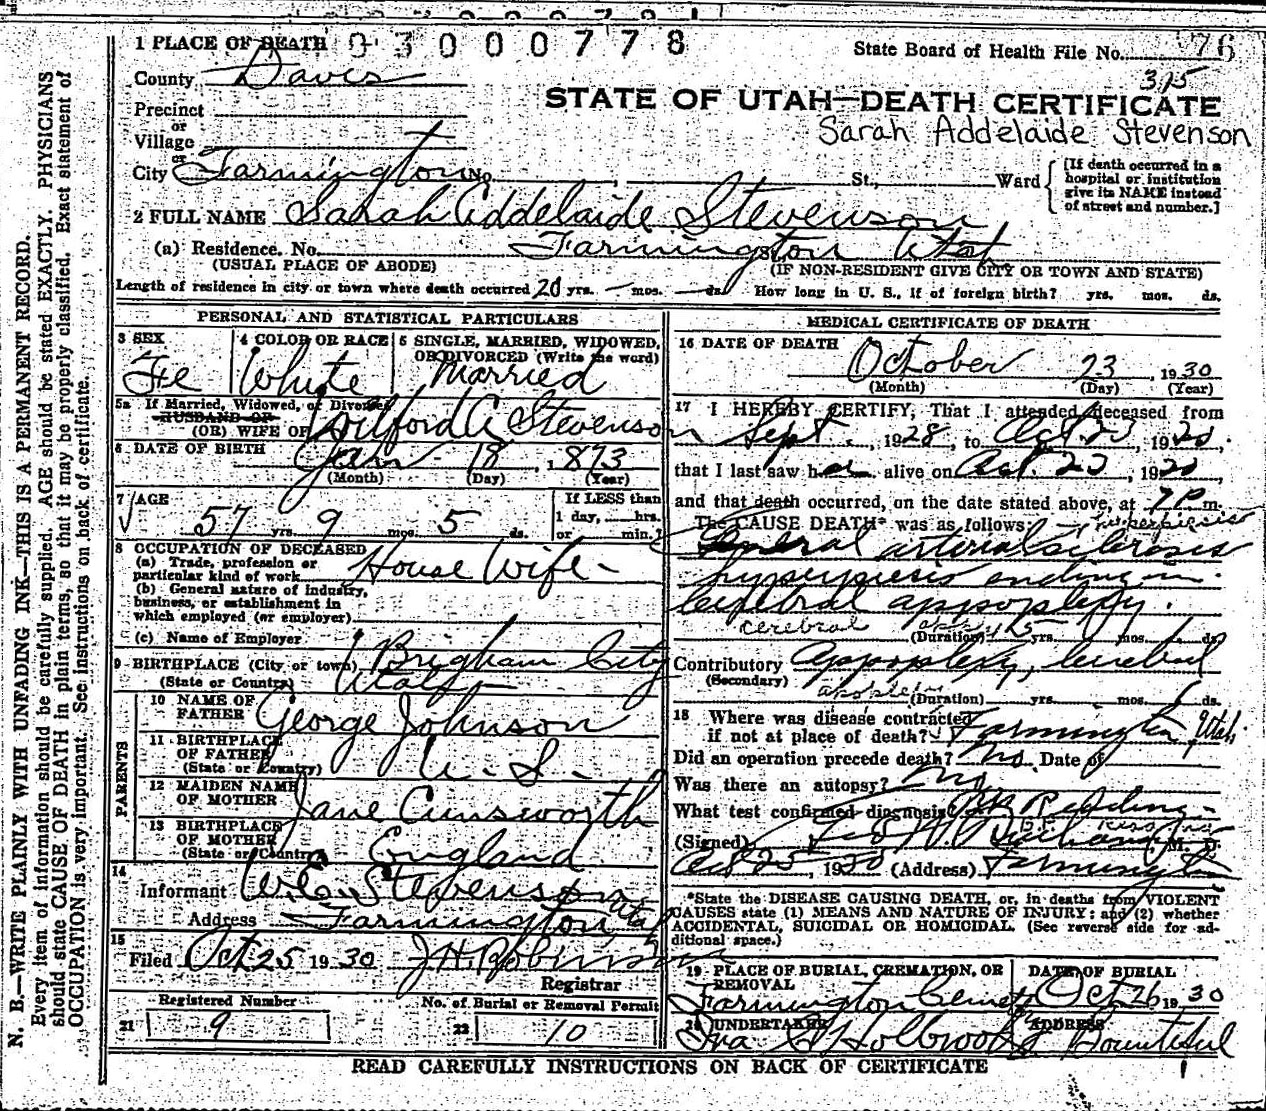 N. B.—WRITE PLAINLY WITH UNFADING INK—THIS IS A PERMANENT RECORD.
Every item of information should be carefully supplied. AGE should be stated EXACTLY. PHYSICIANS
should state CAUSE OF DEATH in plain terms, so that it may be properly classified. Exact statement of
OCCUPATION is very important. See instructions on back of certificate.
1 PLACE OF DEATH 0 3 0 0 0 7 7 8
State Board of Health File No. 76
County Davis
315
STATE OF UTAH—DEATH CERTIFICATE
Precinct
Sarah Addelaide Stevenson
or
Village
or
City Farmington No. St., Ward
[If death occurred in a
hospital or institution
give its NAME instead
of street and number.]
2 FULL NAME Sarah Addelaide Stevenson
(a) Residence. No. St. Farmington Utah
(USUAL PLACE OF ABODE) (IF NON-RESIDENT GIVE CITY OR TOWN AND STATE)
Length of residence in city or town where death occurred 20 yrs. — mos. — ds. How long in U. S., if of foreign birth? yrs. mos. ds.
PERSONAL AND STATISTICAL PARTICULARS
3 SEX 4 COLOR OR RACE 5 SINGLE, MARRIED, WIDOWED,
OR DIVORCED (Write the word)
Fe White Married
5a If Married, Widowed, or Divorced
HUSBAND OR
(OR) WIFE OF Wilford C Stevenson
6 DATE OF BIRTH Jan - 18, 1873
(Month) (Day) (Year)
7 AGE If LESS than
57 yrs. 9 mos. 5 ds. 1 day, hrs.
or min.?
8 OCCUPATION OF DECEASED
(a) Trade, profession or
particular kind of work House Wife -
(b) General nature of industry,
business, or establishment in
which employed (or employer)
(c) Name of Employer
9 BIRTHPLACE (City or town) Brigham City
(State or Country) Utah
PARENTS
10 NAME OF
FATHER George Johnson
11 BIRTHPLACE
OF FATHER
(State or Country) U. S.
12 MAIDEN NAME
OF MOTHER Jane Cunsworth
13 BIRTHPLACE
OF MOTHER
(State or Country) England
14
Informant W.C. Stevenson
Address Farmington Utah
15
Filed Oct 25 1930 J.H. Robinson
Registrar
Registered Number No. of Burial or Removal Permit
21 9 22 10
MEDICAL CERTIFICATE OF DEATH
16 DATE OF DEATH
October 23, 1930
(Month) (Day) (Year)
17 I HEREBY CERTIFY, That I attended deceased from
Sept., 1928, to Oct. 23 1930.
that I last saw her alive on Oct. 23, 1930
and that death occurred, on the date stated above, at 7 P m.
The CAUSE DEATH* was as follows: hyperpiesis
General arterial sclerosis
hyperpiesis ending in
Cerebral appoplexy.
cerebral
(Duration) yrs. mos. ds.
Contributory Appoplexy, Cerebral
(Secondary)
(Duration) yrs. mos. ds.
18 Where was disease contracted
if not at place of death? Farmington, Utah.
Did an operation precede death? No. Date of
Was there an autopsy? No.
What test confirmed diagnosis?
(Signed) M. D.
Oct 25, 1930 (Address) Farmington
*State the DISEASE CAUSING DEATH, or, in deaths from VIOLENT
CAUSES state (1) MEANS AND NATURE OF INJURY; and (2) whether
ACCIDENTAL, SUICIDAL OR HOMICIDAL. (See reverse side for ad-
ditional space.)
19 PLACE OF BURIAL, CREMATION, OR DATE OF BURIAL
REMOVAL
Farmington Cemet Oct 26 1930
20 UNDERTAKER ADDRESS
Ira Holbrook Bountiful
READ CAREFULLY INSTRUCTIONS ON BACK OF CERTIFICATE